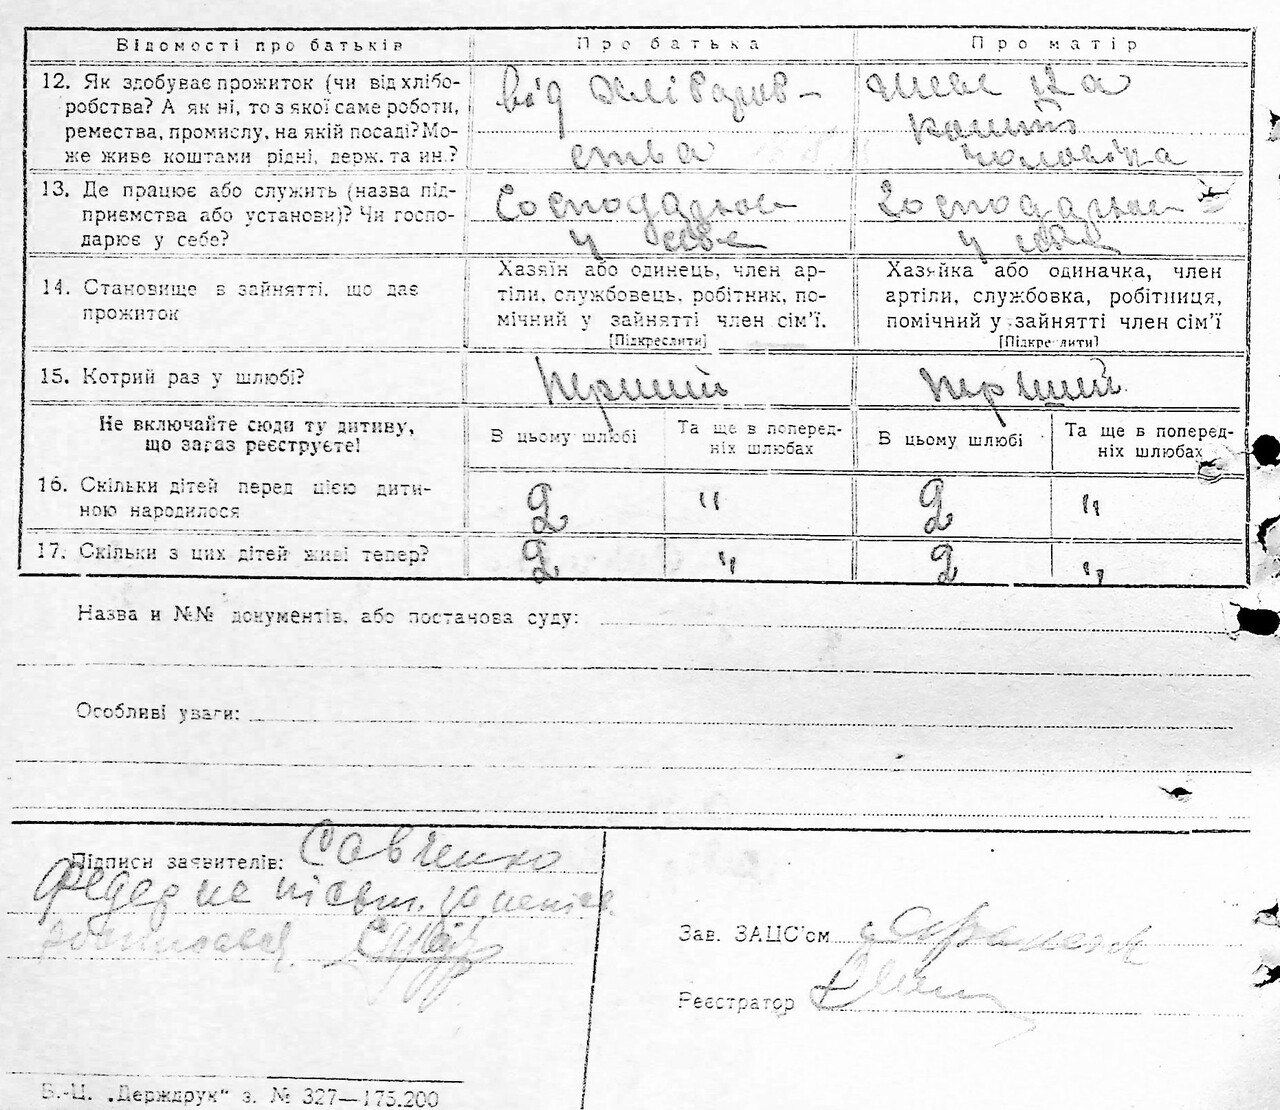 Відомості про батьків
Про батька
Про матір
12. Як здобуває прожиток (чи від хлібо-
робства? А як ні, то з якої саме роботи,
ремества, промислу, на якій посаді? Мо-
же живе коштами рідні, держ. та ин.?
від хлібороб-
ства
живе на
кошти
чоловіка
13. Де працює або служить (назва під-
приємства або установи)? Чи госпо-
дарює у себе?
Господарює
у себе
Господарює
у себе
14. Становище в зайнятті, що дає
прожиток
Хазяїн або одинець, член ар-
тіли, службовець, робітник, по-
мічний у зайнятті член сім'ї.
[Підкреслити]
Хазяйка або одиначка, член
артіли, службовка, робітниця,
помічний у зайнятті член сім'ї
[Підкреслити]
15. Котрий раз у шлюбі?
перший
перший
Не включайте сюди ту дитину,
що зараз реєструєте!
В цьому шлюбі
Та ще в поперед-
ніх шлюбах
В цьому шлюбі
Та ще в поперед-
ніх шлюбах
16. Скільки дітей перед цією дити-
ною народилося
2
"
2
"
17. Скільки з цих дітей живі тепер?
2
"
2
"
Назва и №№ документів, або постанова суду:
Особливі уваги:
Підписи заявителів: Савченко
Федер не письм. за
Зав. ЗАЦС'ом
Реєстратор
Б.-Ц. „Держдрук" з. № 327—175.200